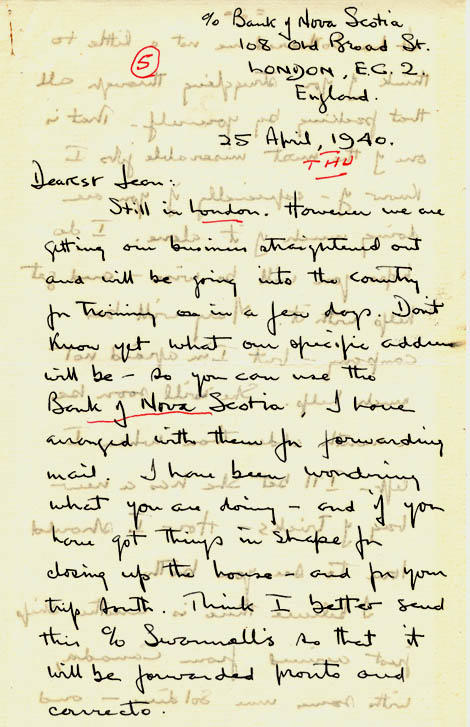 c/o Bank of Nova Scotia
108 Old Broad St.
5
LONDON, E.C. 2.
England.
25 April, 1940.
THU
Dearest Jean:
Still in London. However we are
getting our business straightened out
and will be going into the country
for training in a few days. Don't
know yet what our specific address
will be – so you can use the
Bank of Nova Scotia, I have
arranged with them for forwarding
mail. I have been wondering
what you are doing – and if you
have got things in shape for
closing up the house – and for your
trip south. Think I better send
this c/o Swannell's so that it
will be forwarded pronto and
correcto.